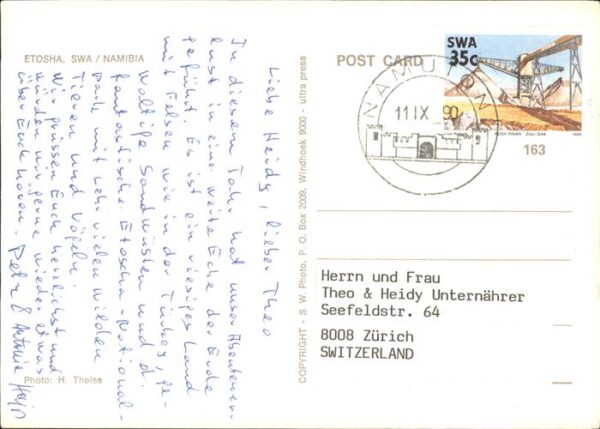 ETOSHA, SWA / NAMIBIA
POST CARD
SWA
35c
NAMUTONI
11 IX 90
163
Liebe Heidy, lieber Theo
In diesem Jahr hat unser Abenteuer-
lust in eine weite Ecke der Erde
geführt. Es ist ein riesiges Land
mit Felsen wie in der Türkei, ge-
waltige Sandwüsten und d.
fantastische Etoscha-National-
park mit sehr vielen wilden
Tieren und Vögeln.
Wir grüssen Euch herzlichst und
würden nur gerne wieder etwas
über Euch hören.
Peter & Antonia
Photo: H. Theiss
COPYRIGHT - S. W. Photo, P. O. Box 2009, Windhoek 9000 - ultra press
Herrn und Frau
Theo & Heidy Unternährer
Seefeldstr. 64
8008 Zürich
SWITZERLAND